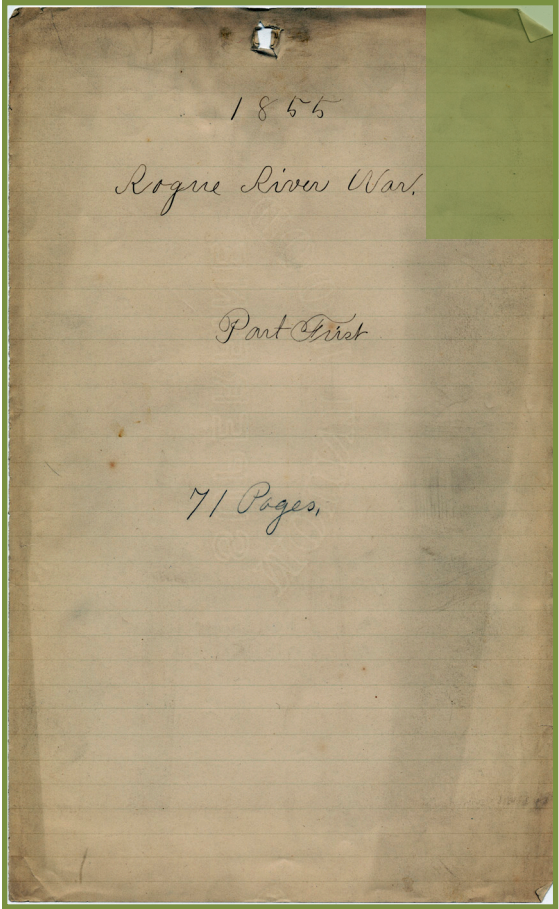 1855
Rogue River War.
Part First
71 Pages.